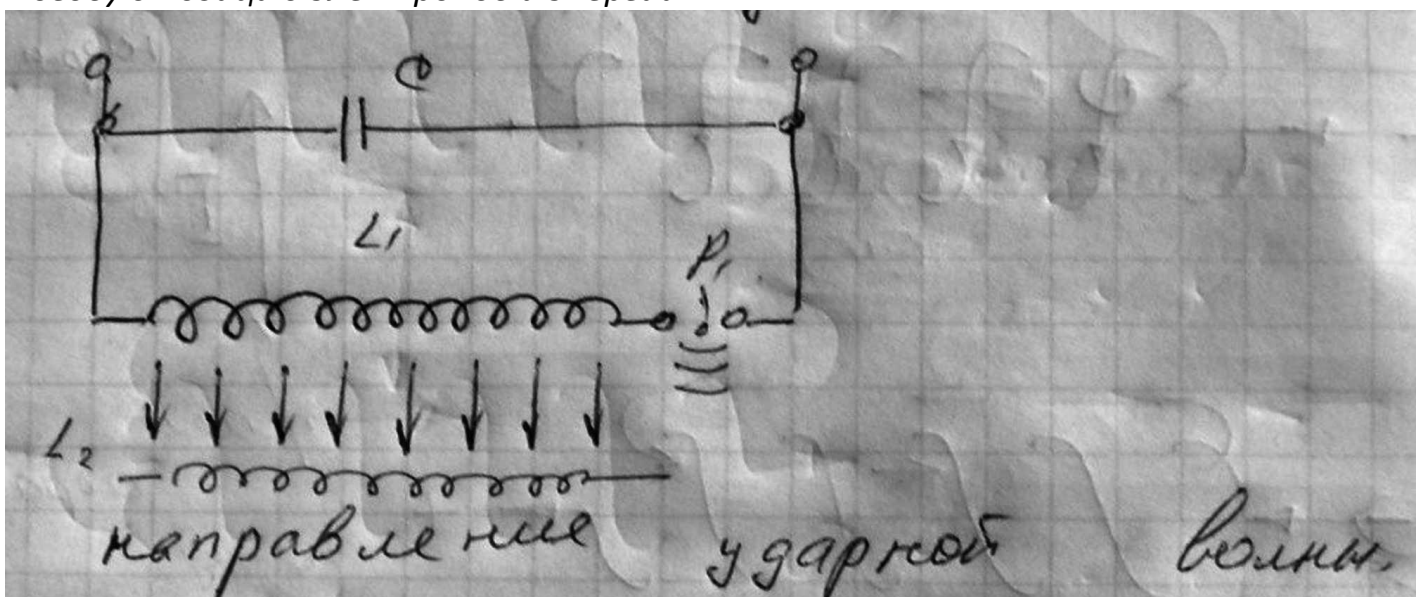 C
L₁
P₁
L₂
направление ударной волны.